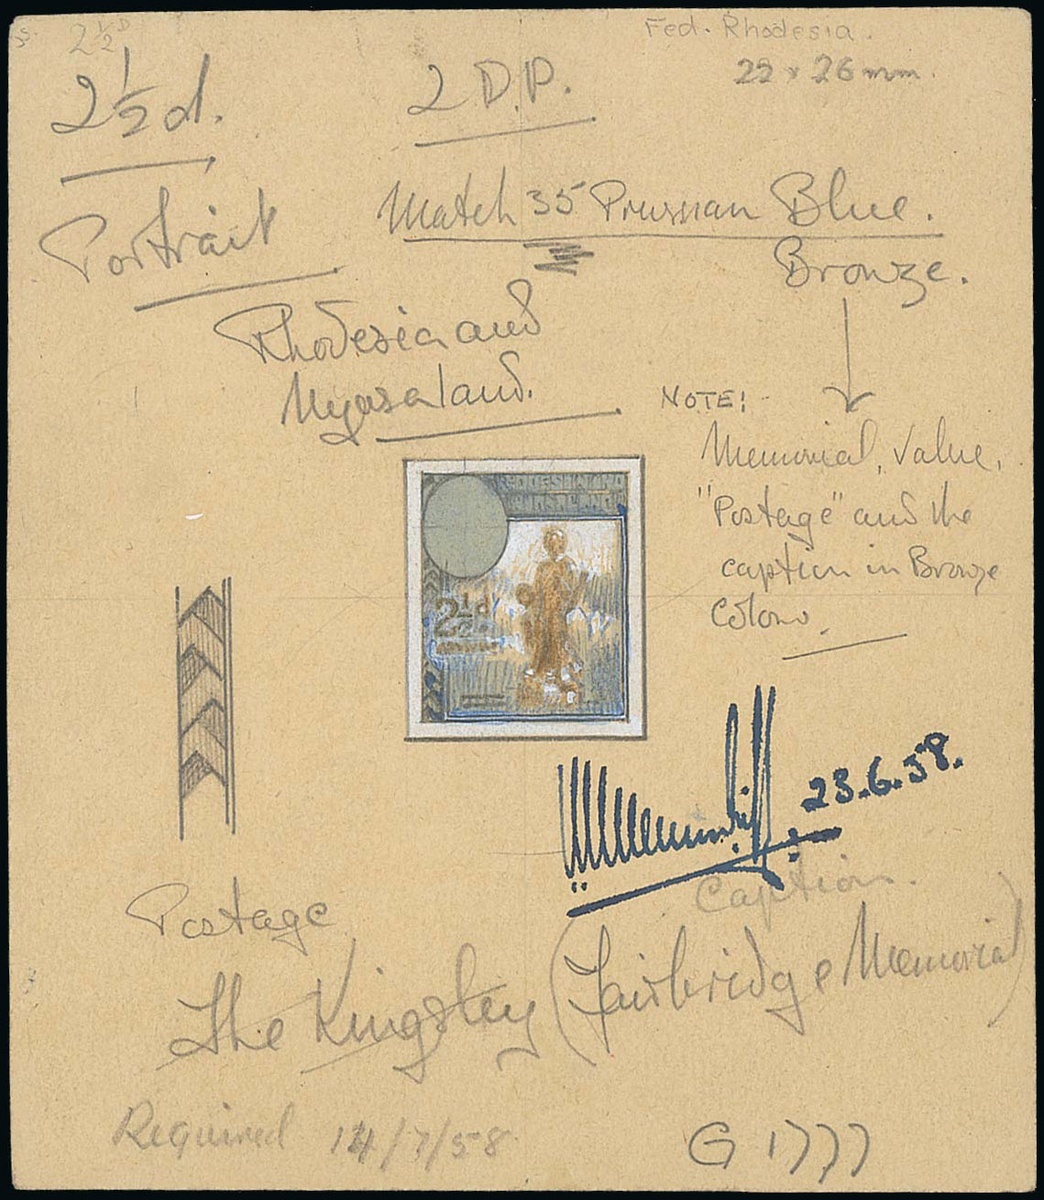 2½D
Fed. Rhodesia.
22 x 26mm.
2½d.
2 D.P.
Portrait
Match 35 Prussian Blue.
Bronze.
Rhodesia and
Nyasaland.
NOTE!
Memorial, Value,
"Postage" and the
caption in Bronze
Colour.
RHODESIA AND
NYASALAND
2½d
23.6.58.
Caption.
Postage
The Kingsley (Fairbridge Memorial)
Required 14/7/58
G 1777